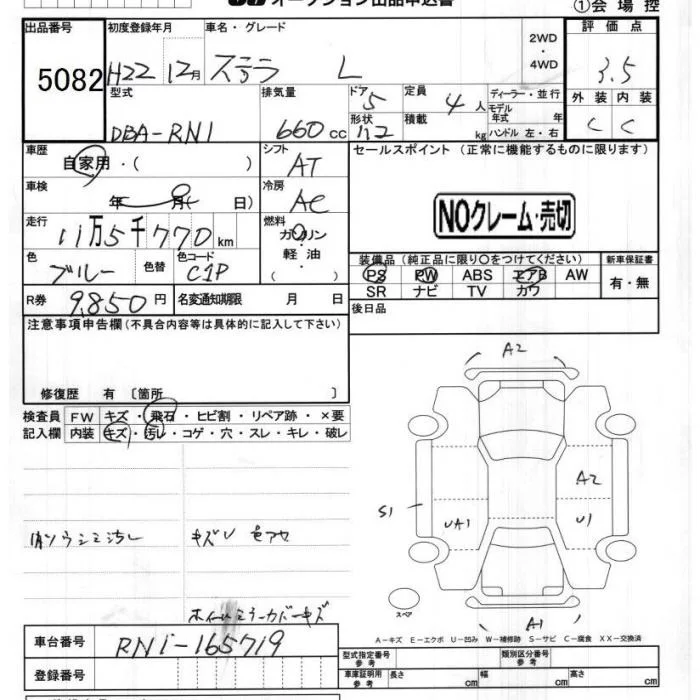 オークション出品申込書
①会場控
出品番号 初度登録年月 車名・グレード 2WD・4WD 評価点
5082 H22 12月 ステラ L 3.5
型式 排気量 ドア 5 定員 4人 ディーラー・並行 外装 内装
DBA-RN1 660cc 形状 積載 kg モデル年式 年 ハンドル 左・右 C C
車歴 自家用・( ) シフト AT セールスポイント(正常に機能するものに限ります)
車検 年 月( 日) 冷房 AC
NOクレーム・売切
走行 11万5千770km 燃料 ガソリン 軽油 ( )
色 ブルー 色替 色コード C1P
装備品(純正品に限り○をつけてください) 新車保証書
PS PW ABS エアB AW 有・無
SR ナビ TV カワ
R券 9,850円 名変通知期限 月 日 後日品
注意事項申告欄(不具合内容等は具体的に記入して下さい)
修復歴 有〔箇所 〕
検査員 FW キズ・飛石・ヒビ割・リペア跡・×要
記入欄 内装 キズ・汚レ・コゲ・穴・スレ・キレ・破レ
A2
A2
S1 UA1 U1
A1
キズU 色アセ
スペア
ホイールミラーカバーキズ
A-キズ E-エクボ U-凹み W-補修跡 S-サビ C-腐食 XX-交換済
車台番号 RN1-165719
型式指定番号 参考 類別区分番号 参考
登録番号
車庫証明用 参考 長さ cm 幅 cm 高さ cm